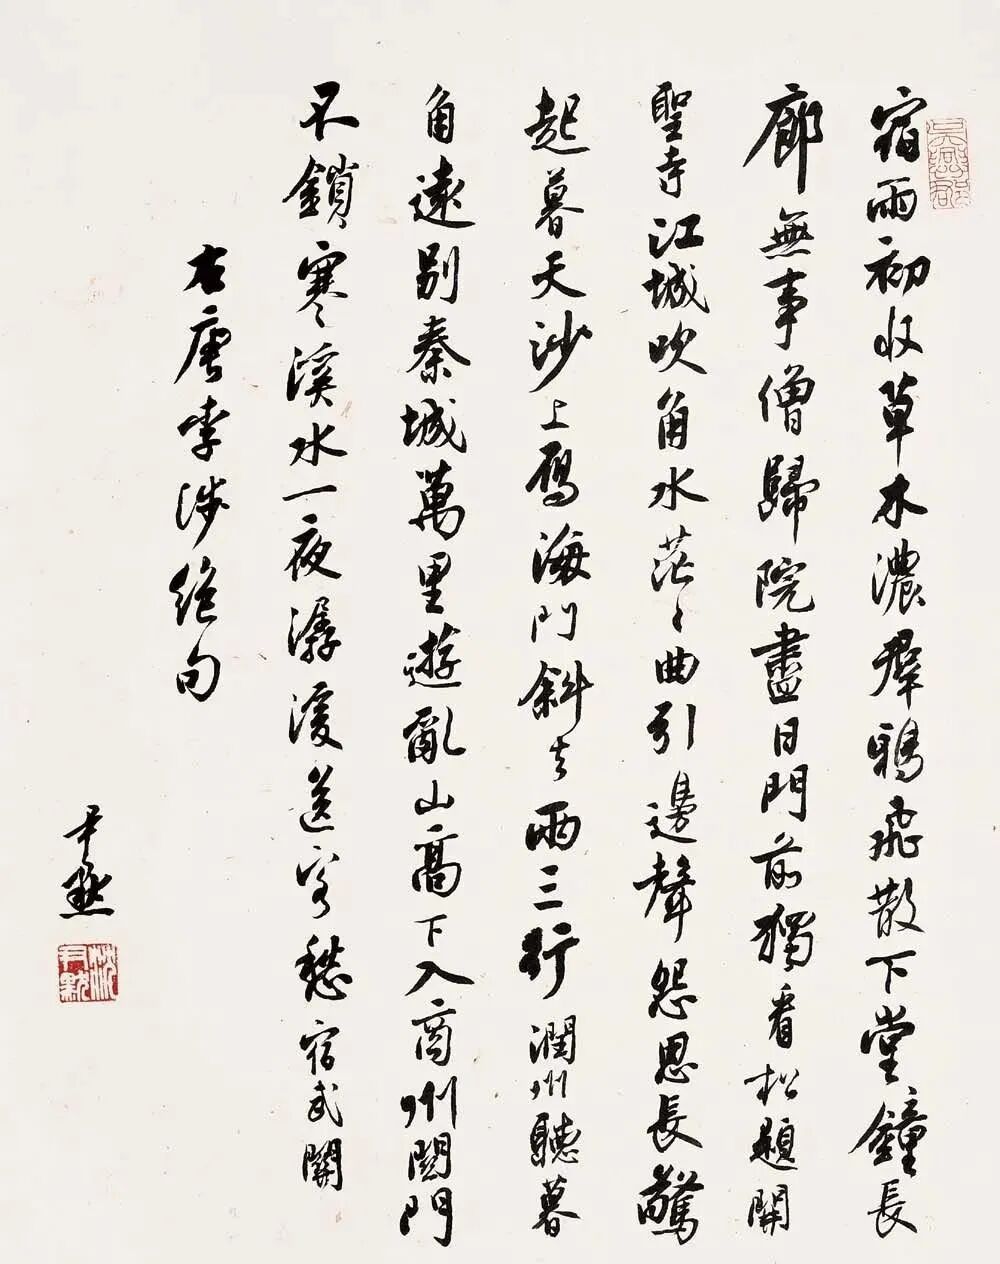 宿雨初收草木濃羣鴉飛散下堂鐘長
廊無事僧歸院盡日門前獨看松題開
聖寺江城吹角水茫〻曲引邊聲怨思長驚
起暮天沙上鴈海門斜去兩三行潤州聽暮
角遠別秦城萬里遊亂山高下入商州關門
不鎖寒溪水一夜潺湲送客愁宿武關
右唐李涉絕句
尹默
沈尹默